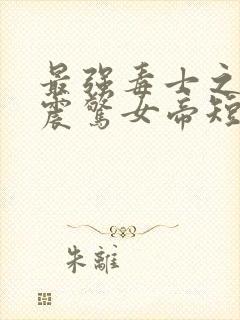 最强毒士之
震驚女帝短
朱離